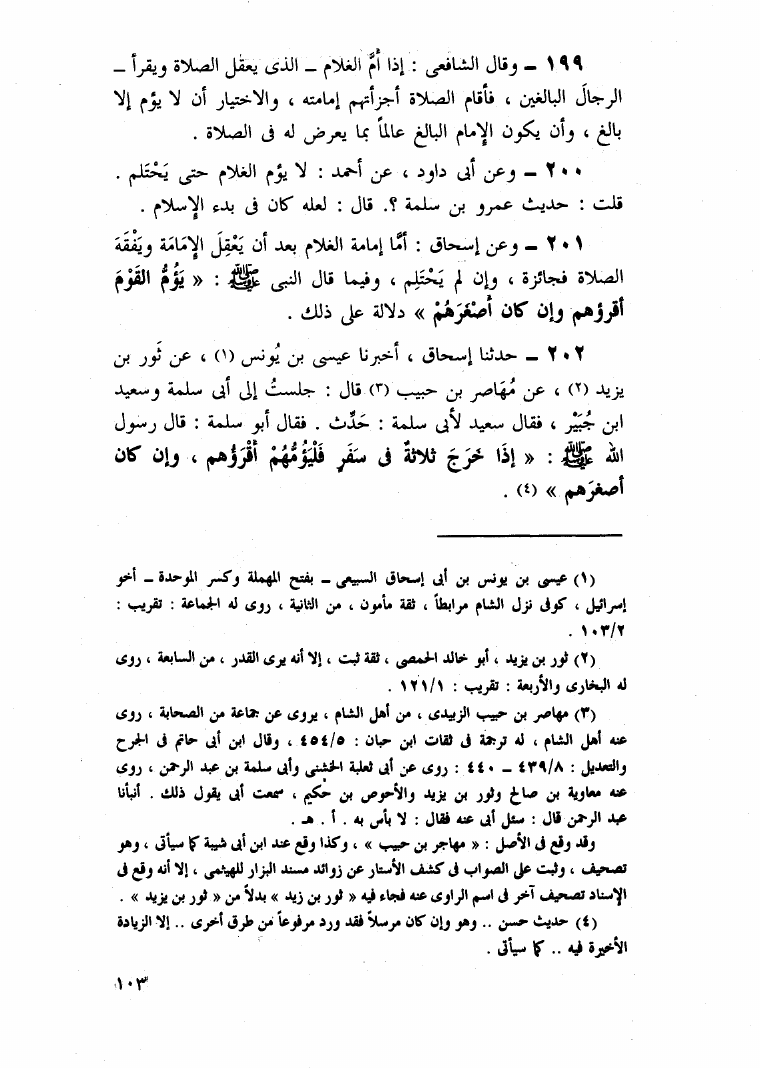 ١٩٩ – وقال الشافعى : إذا أُمَّ الغلام – الذى يعقل الصلاة ويقرأ –
الرجالَ البالغين ، فأقام الصلاة أجزأتهم إمامته ، والاختيار أن لا يؤم إلا
بالغ ، وأن يكون الإمام البالغ عالماً بما يعرض له فى الصلاة .
٢٠٠ – وعن أبى داود ، عن أحمد : لا يؤم الغلام حتى يَحْتَلم .
قلت : حديث عمرو بن سلمة ؟. قال : لعله كان فى بدء الإسلام .
٢٠١ – وعن إسحاق : أمَّا إمامة الغلام بعد أن يَعْقِلَ الإمَامَة ويَفْقَهَ
الصلاة فجائزة ، وإن لم يَحْتَلِم ، وفيما قال النبى ﷺ : « يَؤُمُّ القَوْمَ
أقرؤهم وإن كان أصْغَرَهُمْ » دلالة على ذلك .
٢٠٢ – حدثنا إسحاق ، أخبرنا عيسى بن يُونس (١) ، عن ثَور بن
يزيد (٢) ، عن مُهَاصر بن حبيب (٣) قال : جلستُ إلى أبى سلمة وسعيد
ابن جُبَيْر ، فقال سعيد لأبى سلمة : حَدِّث . فقال أبو سلمة : قال رسول
الله ﷺ : « إذَا خَرَجَ ثلاثةٌ فى سَفَرٍ فَلْيَؤُمُّهُمْ أقْرَؤُهم ، وإن كان
أصغرَهم » (٤) .
(١) عيسى بن يونس بن أبى إسحاق السبيعى – بفتح المهملة وكسر الموحدة – أخو
إسرائيل ، كوفى نزل الشام مرابطاً ، ثقة مأمون ، من الثانية ، روى له الجماعة : تقريب :
١٠٣/٢ .
(٢) ثور بن يزيد ، أبو خالد الحمصى ، ثقة ثبت ، إلا أنه يرى القدر ، من السابعة ، روى
له البخارى والأربعة : تقريب : ١٢١/١ .
(٣) مهاصر بن حبيب الزبيدى ، من أهل الشام ، يروى عن جماعة من الصحابة ، روى
عنه أهل الشام ، له ترجمة فى ثقات ابن حبان : ٤٥٤/٥ ، وقال ابن أبى حاتم فى الجرح
والتعديل : ٤٣٩/٨ – ٤٤٠ : روى عن أبى ثعلبة الخشنى وأبى سلمة بن عبد الرحمن ، روى
عنه معاوية بن صالح وثور بن يزيد والأحوص بن حكيم ، سمعت أبى يقول ذلك . أنبأنا
عبد الرحمن قال : سئل أبى عنه فقال : لا بأس به . أ . هـ .
وقد وقع فى الأصل : « مهاجر بن حبيب » ، وكذا وقع عند ابن أبى شيبة كما سيأتى ، وهو
تصحيف ، وثبت على الصواب فى كشف الأستار عن زوائد مسند البزار للهيثمى ، إلا أنه وقع فى
الإسناد تصحيف آخر فى اسم الراوى عنه فجاء فيه « ثور بن زيد » بدلاً من « ثور بن يزيد » .
(٤) حديث حسن .. وهو وإن كان مرسلاً فقد ورد مرفوعاً من طرق أخرى .. إلا الزيادة
الأخيرة فيه .. كما سيأتى .
١٠٣